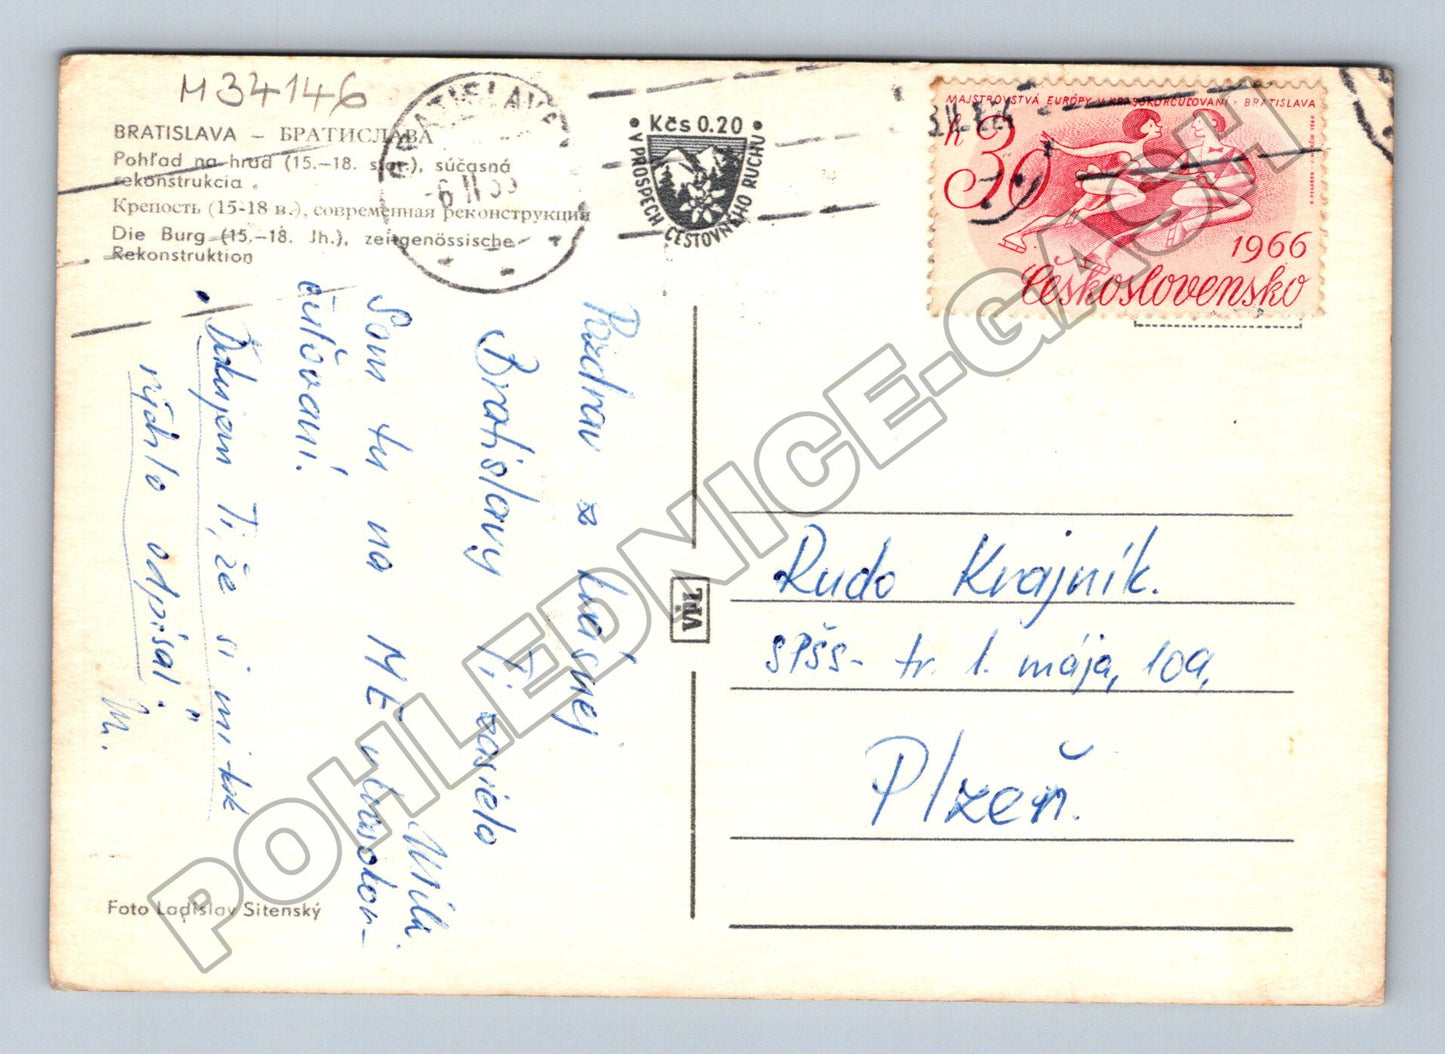 M34146
BRATISLAVA – БРАТИСЛАВА
Pohľad na hrad (15.–18. stor.), súčasná
rekonštrukcia
Крепость (15-18 в.), современная реконструкция
Die Burg (15.–18. Jh.), zeitgenössische
Rekonstruktion
BRATISLAVA
-6.II
Kčs 0.20
V PROSPECH CESTOVNÉHO RUCHU
MAJSTROVSTVÁ EURÓPY V KRASOKORČUĽOVANÍ · BRATISLAVA
30 h
1966
Československo
Pozdrav z krásnej
Bratislavy Ti zasiela
Milka.
Som tu na ME v kraskor-
čuľovaní.
Ďakujem Ti, že si mi tak
rýchlo odpísal."
M.
VPL
Rudo Krajník.
SPŠS- tr. 1. mája, 109,
Plzeň.
Foto Ladislav Sitenský
POHLEDNICE-GASCH